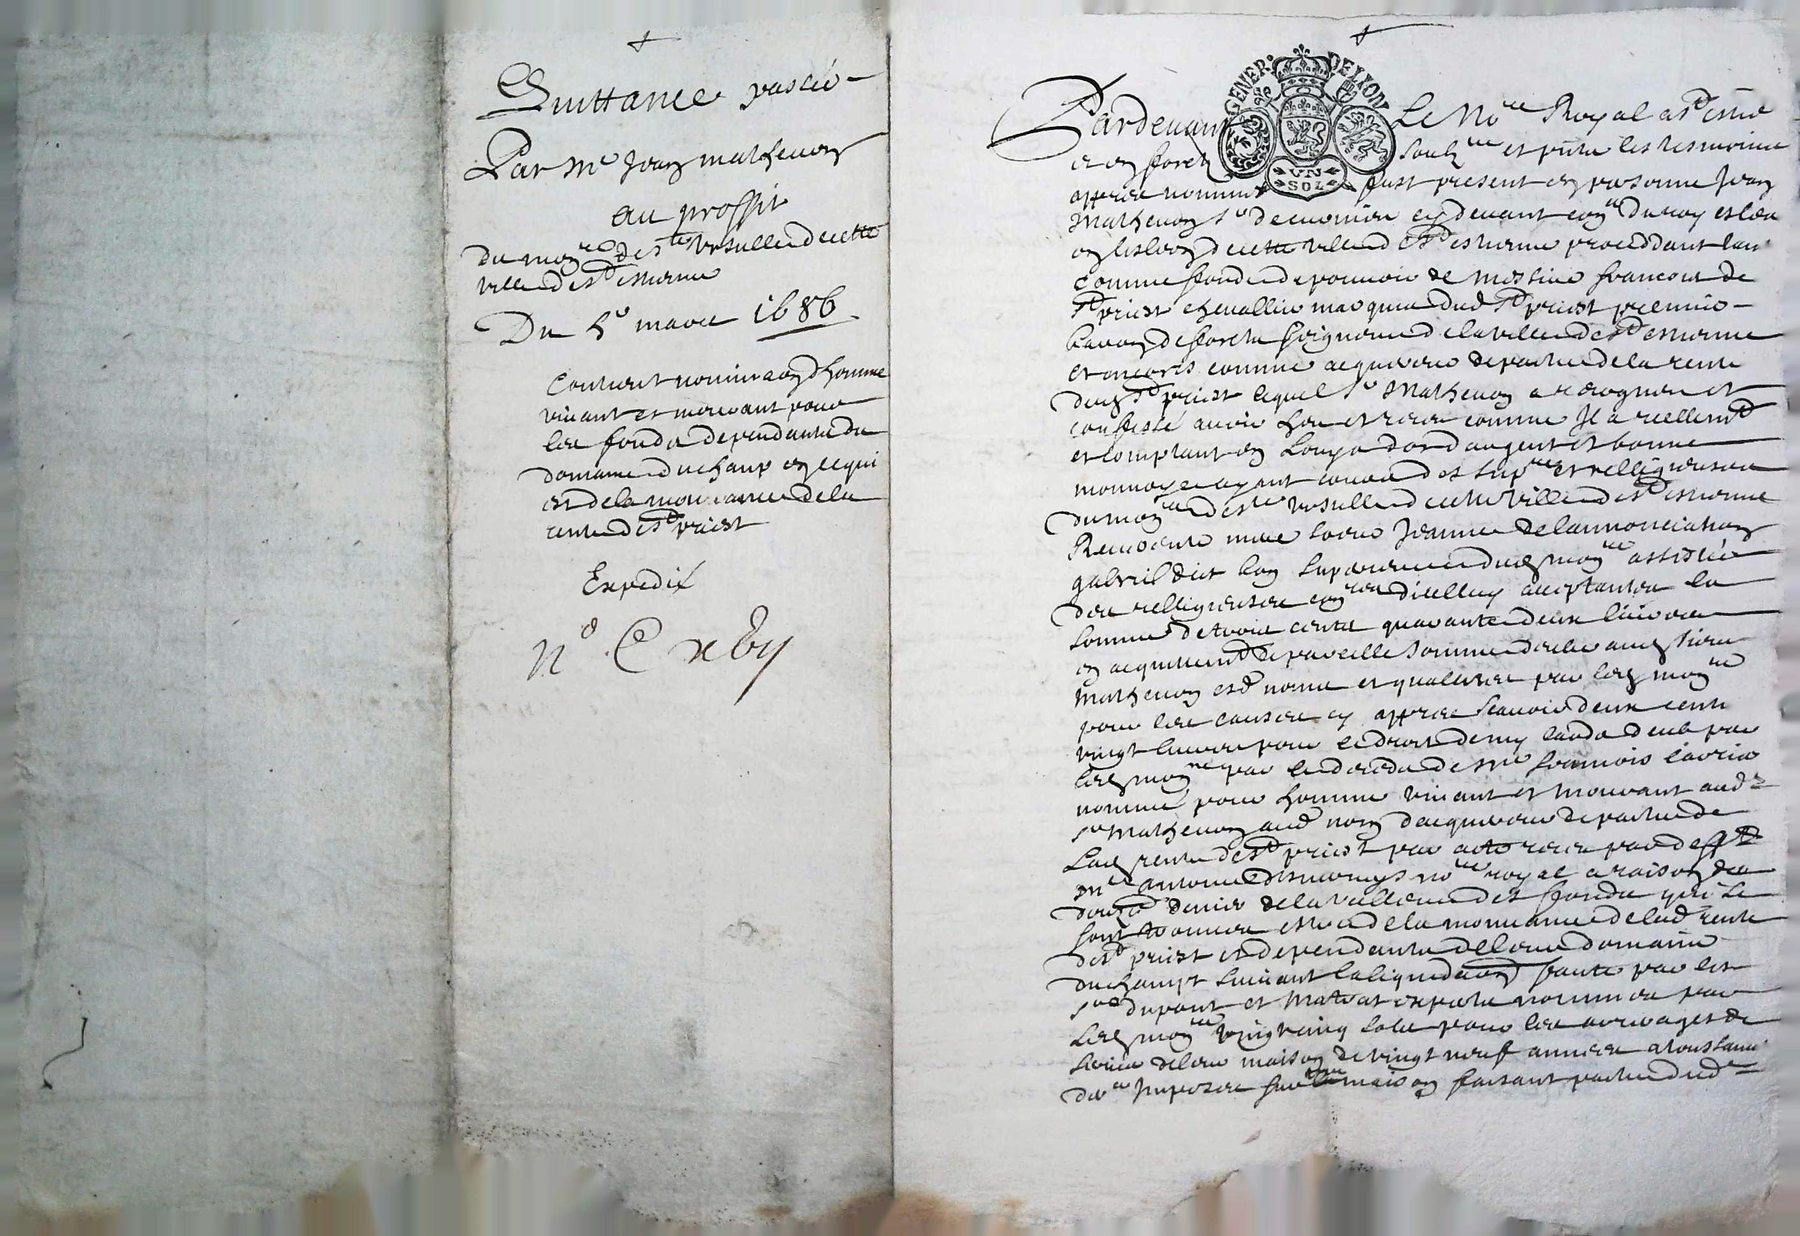 Quittance passée
Par Me Jean mathevon
au proffit
du monre de Ste Vrsulle de cette
ville de St estienne
Du 5e mars 1686.
Contient nominaon d'homme
viuant et mouvant pour
les fonds dependants du
domaine du champ en ce qui
est de la mouvance de la
rente de St priest
Expedié
No C
GENER. DE LION
VN
SOL
Pardeuant Le Nore Royal a St estie
et en forest soubzne et pnts les tesmoins
appres nommes fust present en personne Jean
Mathevon Sr de cy deuant conr du roy esleu
en leslon de cette ville de St estienne proceddant
comme fondé de pouuoir de Messire francois de
St priest cheuallier marquis dud St priest premier
baron de forestz seigneur de la ville de St estienne
et encores comme acquereur de partie de la rente
dud St priest lequel Sr Mathevon a recogneu et
confessé auoir heu et receu comme Il a reellemt
et comptant en Louys d'or d'argent et bonne
monnoye ayant cours des supre et relligieuses
du monre de Ste Vrsulle de cette ville de St estienne
Reuerente mere soeur Jeanne de lannonciation
gabriel dict bon superieure dud monre assistée
des relligieuses conres d'icelluy acceptantes la
somme de trois centz quarante deux liures
en acquittemt de pareille somme deube aud sieur
Mathevon esd noms et qualittes par led monre
pour les causes cy appres scauoir deux centz
vingt liures pour le droit de my laods deub par
led monre par le deces de Me francois
nommé pour homme viuant et mouvant aud
sr Mathevon aud nom d'acquereur de partie de
Lad rente de St priest par acte receu par defft
me Antoine nore royal a raison du
douze denier de la valleur des fonds qui se
sont trouues estre de la mouvance de lad rente
de St priest et dependants de leur domaine
du champt suiuant la liquidaon faicte par les
srs dupont et Matrat expertz nommes par
Led monre vingt cinq solz pour les arrerages de
seruis de leur maison de vingt neuf annees a toussainctz
Imposes sur maison faisant partie dud